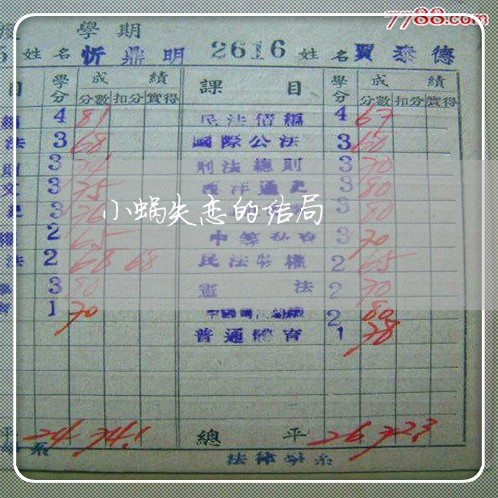 7788.com
學期
5 姓名 忻鼎明 2616 姓名 賈泰德
目 學分 成績 課目 學分 成績
分數 扣分 實得 分數 扣分 實得
4 81 民法債編 4 67
法 3 68 國際公法 3 60
3 刑法總則 3 70
文 3 75 西洋通史 3 80
3 3 80
小蜗失恋的结局
權 2 65 3 70
法 2 68 68 民法物權 2 65
3 80 憲法 2 70
育 1 70 2 80
普通體育 1 78
平 24 74.1 總平 26 72.3
系 法律學系